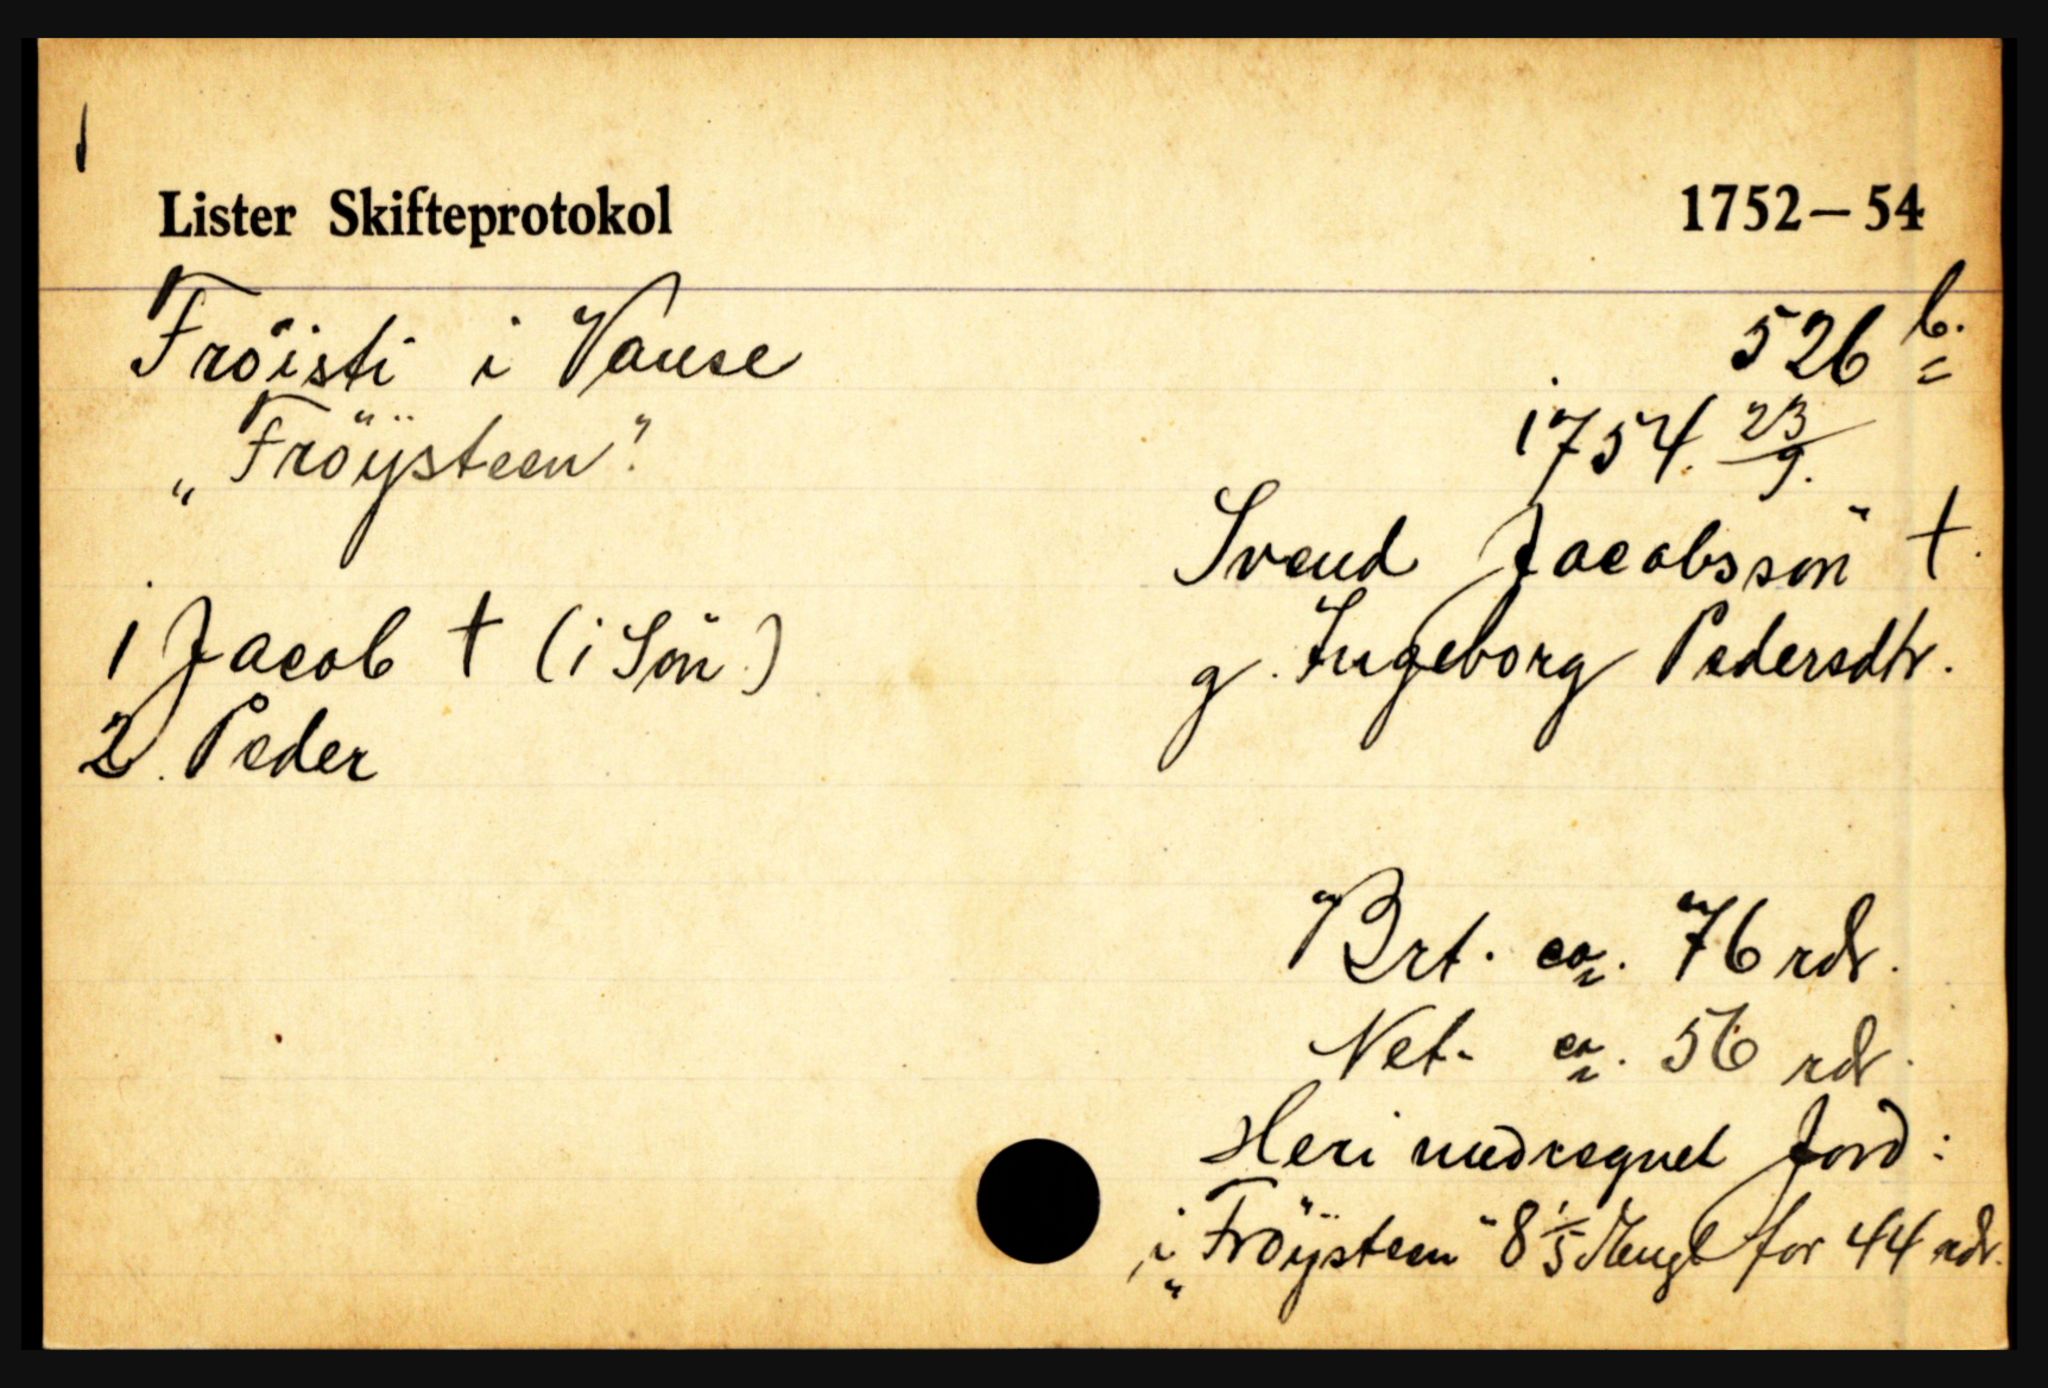 Lister Skifteprotokol 1752–54
Fröisti i Vanse 526 b.
„Fröÿsteen". 1754. 23/9.
Svend Jacobssön †.
1 Jacob † (1 Sön) g. Ingeborg Pedersdtr.
2. Peder
Brt. ca. 76 rdr.
Net. ca. 56 rdr.
Heri medregnet Jord:
i „Fröÿsteen" 8 1/5 Hengl for 44 rdr.